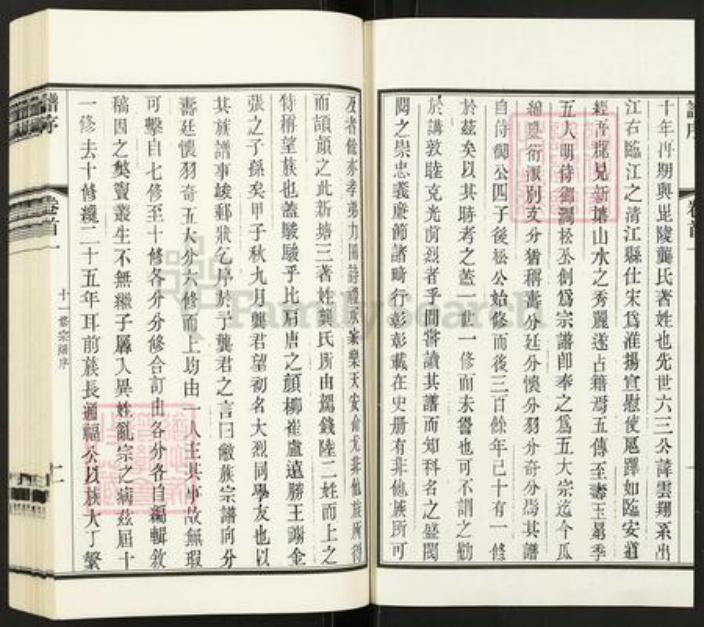 譜序
卷首一
十年冉期與毘陵龔氏著姓也先世六三公諱雲翔系出
江右臨江之清江縣仕宋爲淮揚宣慰使扈蹕如臨安道
經晉郡見新塘山水之秀麗遂占籍焉五傳至
五人明侍御澗松公創爲宗譜卽奉之爲五大宗迄今瓜
綿慶衍派別支分猶稱壽分廷分懷分羽分奇分爲其譜
自侍御公四子後松公始修而後三百餘年已十有一修
於茲矣以其時考之蓋一世一修而未嘗也可不謂之勤
於講敦睦克光前烈者乎間嘗讀其譜而知科名之盛閥
閱之崇忠義廉節諸畸行彰彰載在史册有非他族所可
及者
而頡頏之此新塘三著姓龔氏所由駕錢陸二姓而上之
特稱望族也蓋駸駸乎比肩唐之顏柳崔盧遠勝王謝金
張之子孫矣甲子秋九月龔君望初名大烈同學友也以
其族譜事竣郵狀乞序於予龔君之言曰敝族宗譜向分
壽廷懷羽奇五大分六修而上均由一人主其事故無瑕
可擊自七修至十修各分分修合訂由各分各自編輯敘
稿因之獘竇叢生不無繼子孱入異姓亂宗之病茲屆十
一修去十修纔二十五年耳前族長通福公以族大丁繁
譜序
卷首一
十一修宗譜序
FamilySearch